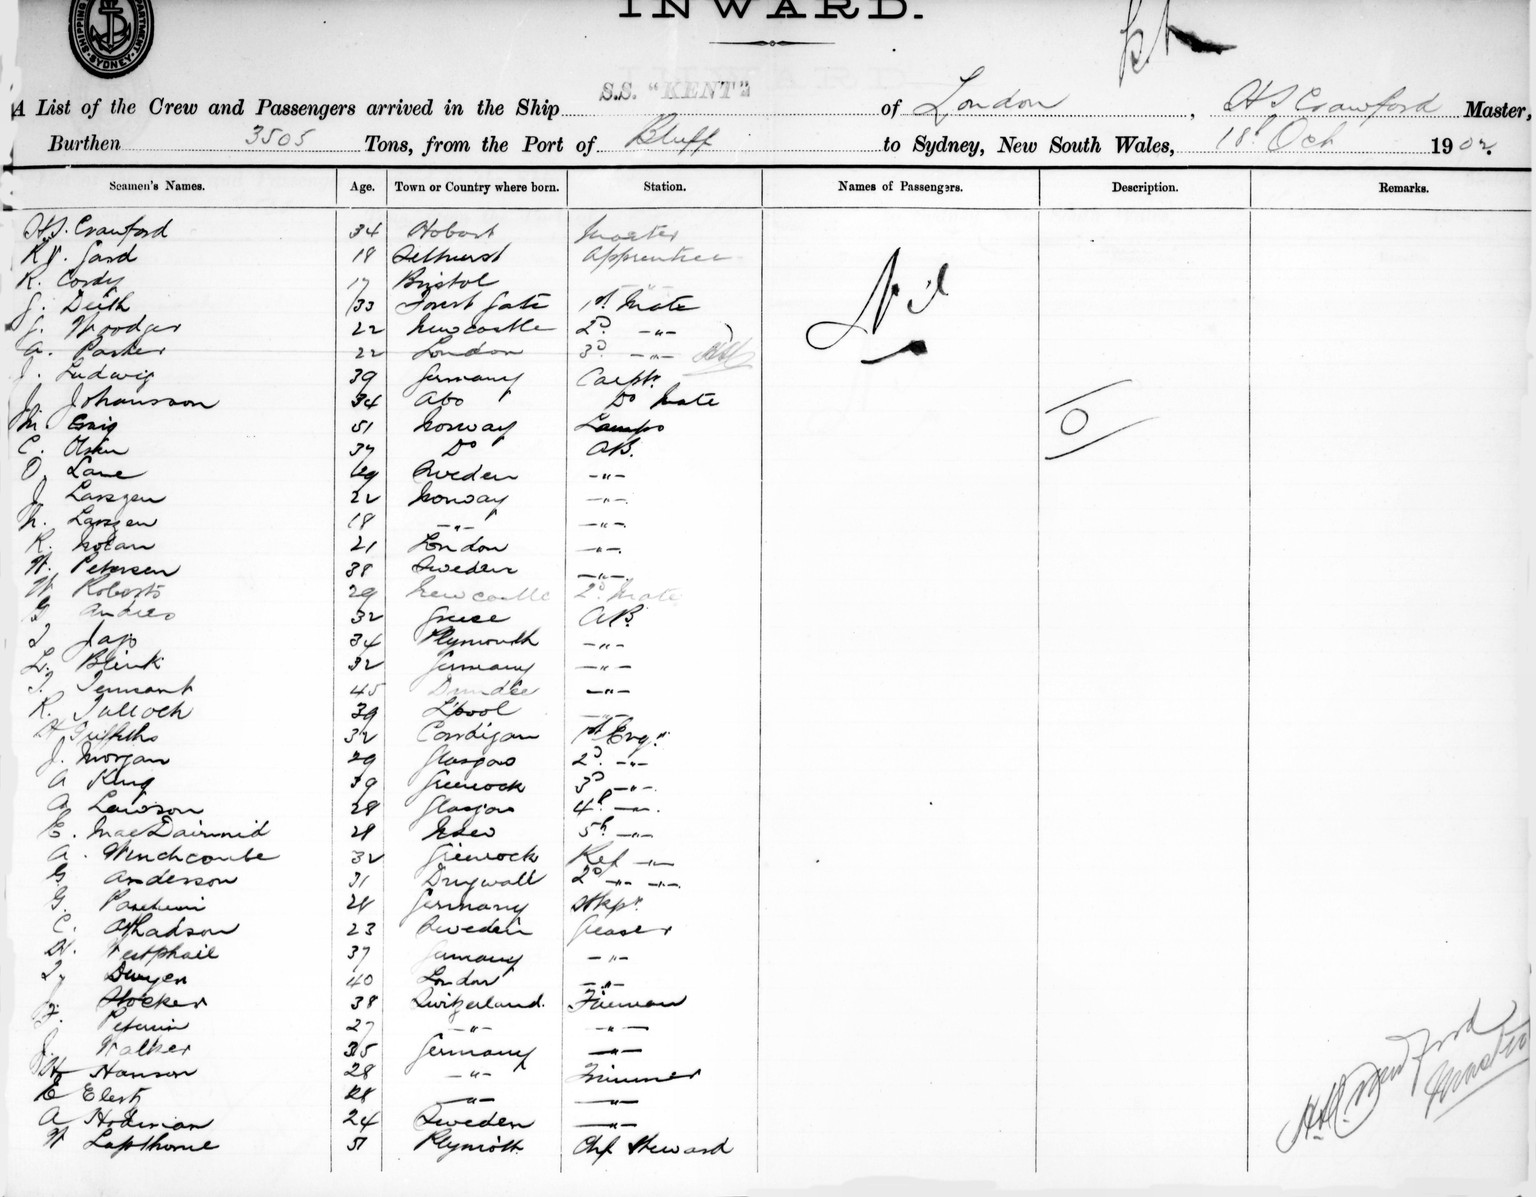 INWARD.
SHIPPING DEPARTMENT SYDNEY
S.S. "KENT"
A List of the Crew and Passengers arrived in the Ship of London, H S Crawford Master,
Burthen 3505 Tons, from the Port of Bluff to Sydney, New South Wales, 18th Oct 1902.
Seamen's Names. Age. Town or Country where born. Station. Names of Passengers. Description. Remarks.
H.S. Crawford 34 Hobart Master
Gard 18 Selhurst Apprentice
R. Cordy 17 Bristol
J. 33 Forest Gate 1st Mate
J. Woodger 22 Newcastle 2D. -"-
A. Parker 22 London 3D -"-
J. Ludwig 39 Germany Carptr
J. Johansson 34 Abo Do Mate
M. Craig 51 Norway Lamps
C. Olsen 37 Do AB.
O. Lane 49 Sweden -"-
J. Larszen 22 Norway -"-
N. Larszen 18 -"- -"-
R. Nolan 21 London -"-
W. Petersen 38 Sweden -"-
W. Roberts 29 Newcastle 2D Mate
G. Andres 32 Greece AB.
J. Jago 34 Plymouth -"-
L. Blink 32 Germany -"-
T. Tennant 45 Dundee -"-
R. Tulloch 39 L'pool -"-
H Griffiths 32 Cardigan 1st Engr
J. Morgan 29 Glasgow 2D -"-
A King 39 Greenock 3D -"-
A Lawson 28 Glasgow 4th -"-
E. MacDairmid 28 5th -"-
A. Winchcombe 32 Greenock Ref -"-
G. Anderson 31 2D -"- -"-
G. 28 Germany Stkpr
C. 23 Sweden Greaser
W. Westphail 37 Germany -"-
T. Dwyer 40 London -"-
J. Stocker 38 Switzerland. Fireman
F. 27 -"- -"-
J. Walker 35 Germany -"-
H Hanson 28 -"- Trimmer
E Elert 28 -"- -"-
A 24 Sweden -"-
W Lapthorne 51 Plymoth Chf Steward
Nil
H.S. Crawford
Master